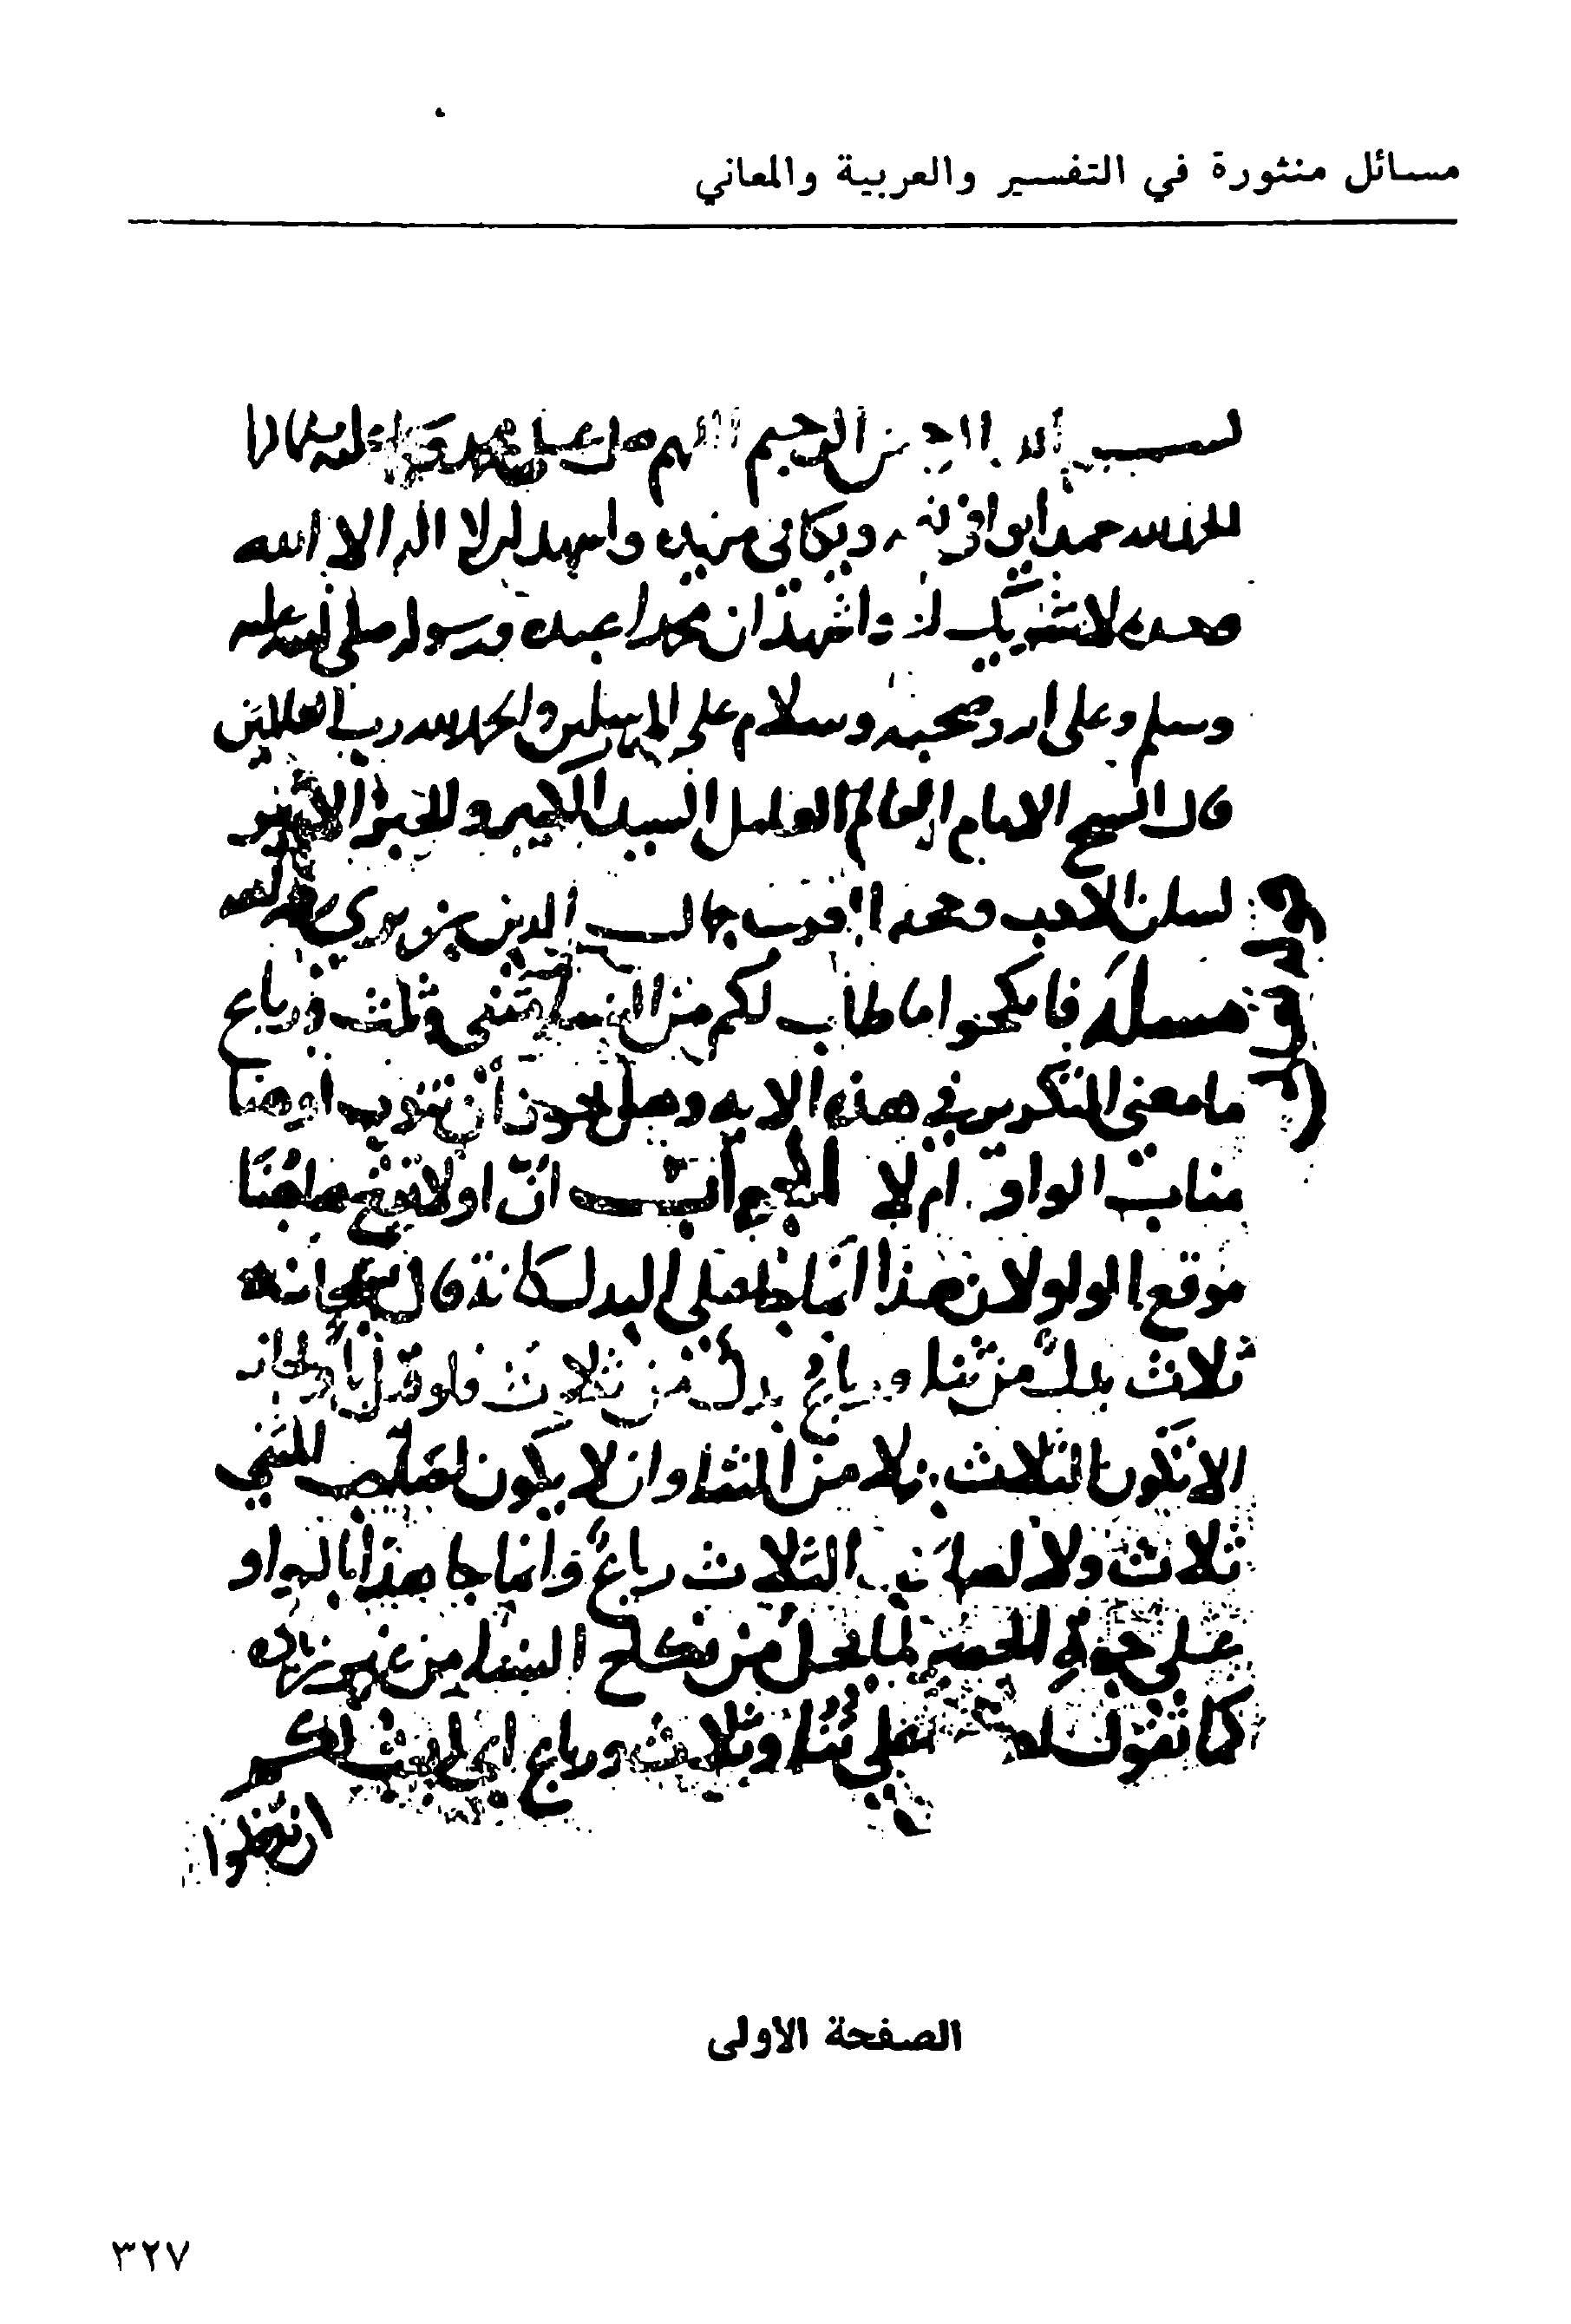 مسائل منثورة في التفسير والعربية والمعاني
الرحيم اللهم صل على محمد
حمدا يوافي نعمه ويكافي مزيده واشهد ان لا اله الا الله
وحده لا شريك له واشهد ان محمدا عبده ورسوله صلى الله عليه
وسلم وعلى اله وصحبه وسلام على المرسلين والحمد لله رب العالمين
قال الشيخ الامام العالم العامل السيد الكبير والحبر
لسان الادب وحجة العرب جمال الدين بن بري رحمه الله
مسألة فانكحوا ما طاب لكم من النساء مثنى وثلث ورباع
ما معنى التكرير في هذه الايه وهل يجوز أن تنوب او هنا
مناب الواو ام لا الجواب انّ او لا تقع هاهُنَا
موقع الواو لان هذا انما جا على البدل كانه قال سبحانه
ثلاث بدلٌ من ثنا ورباعُ بدل من ثلاث فلو قيل باو لجاز
الا تكون الثلاث بدلا من المثنا وان لا يكون لصاحب المثنى
ثلاث ولا لصاحب الثلاث رباعٌ وانما جا هذا بالواو
على جهة الحصر لما يحل من نكاح النسا من غير زياده
كما تقول لهم على ثنا وثلاث ورباع اي ليس لكم
ان تدخلوا
الصفحة الاولى
٣٢٧